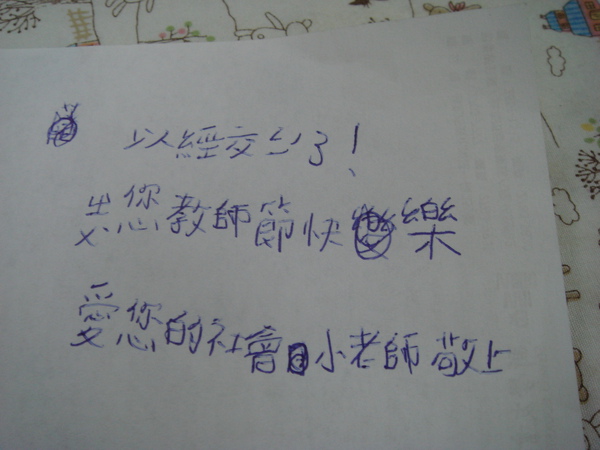 以經交了!
ㄓㄨˋ您教師節快樂
愛您的社會小老師敬上